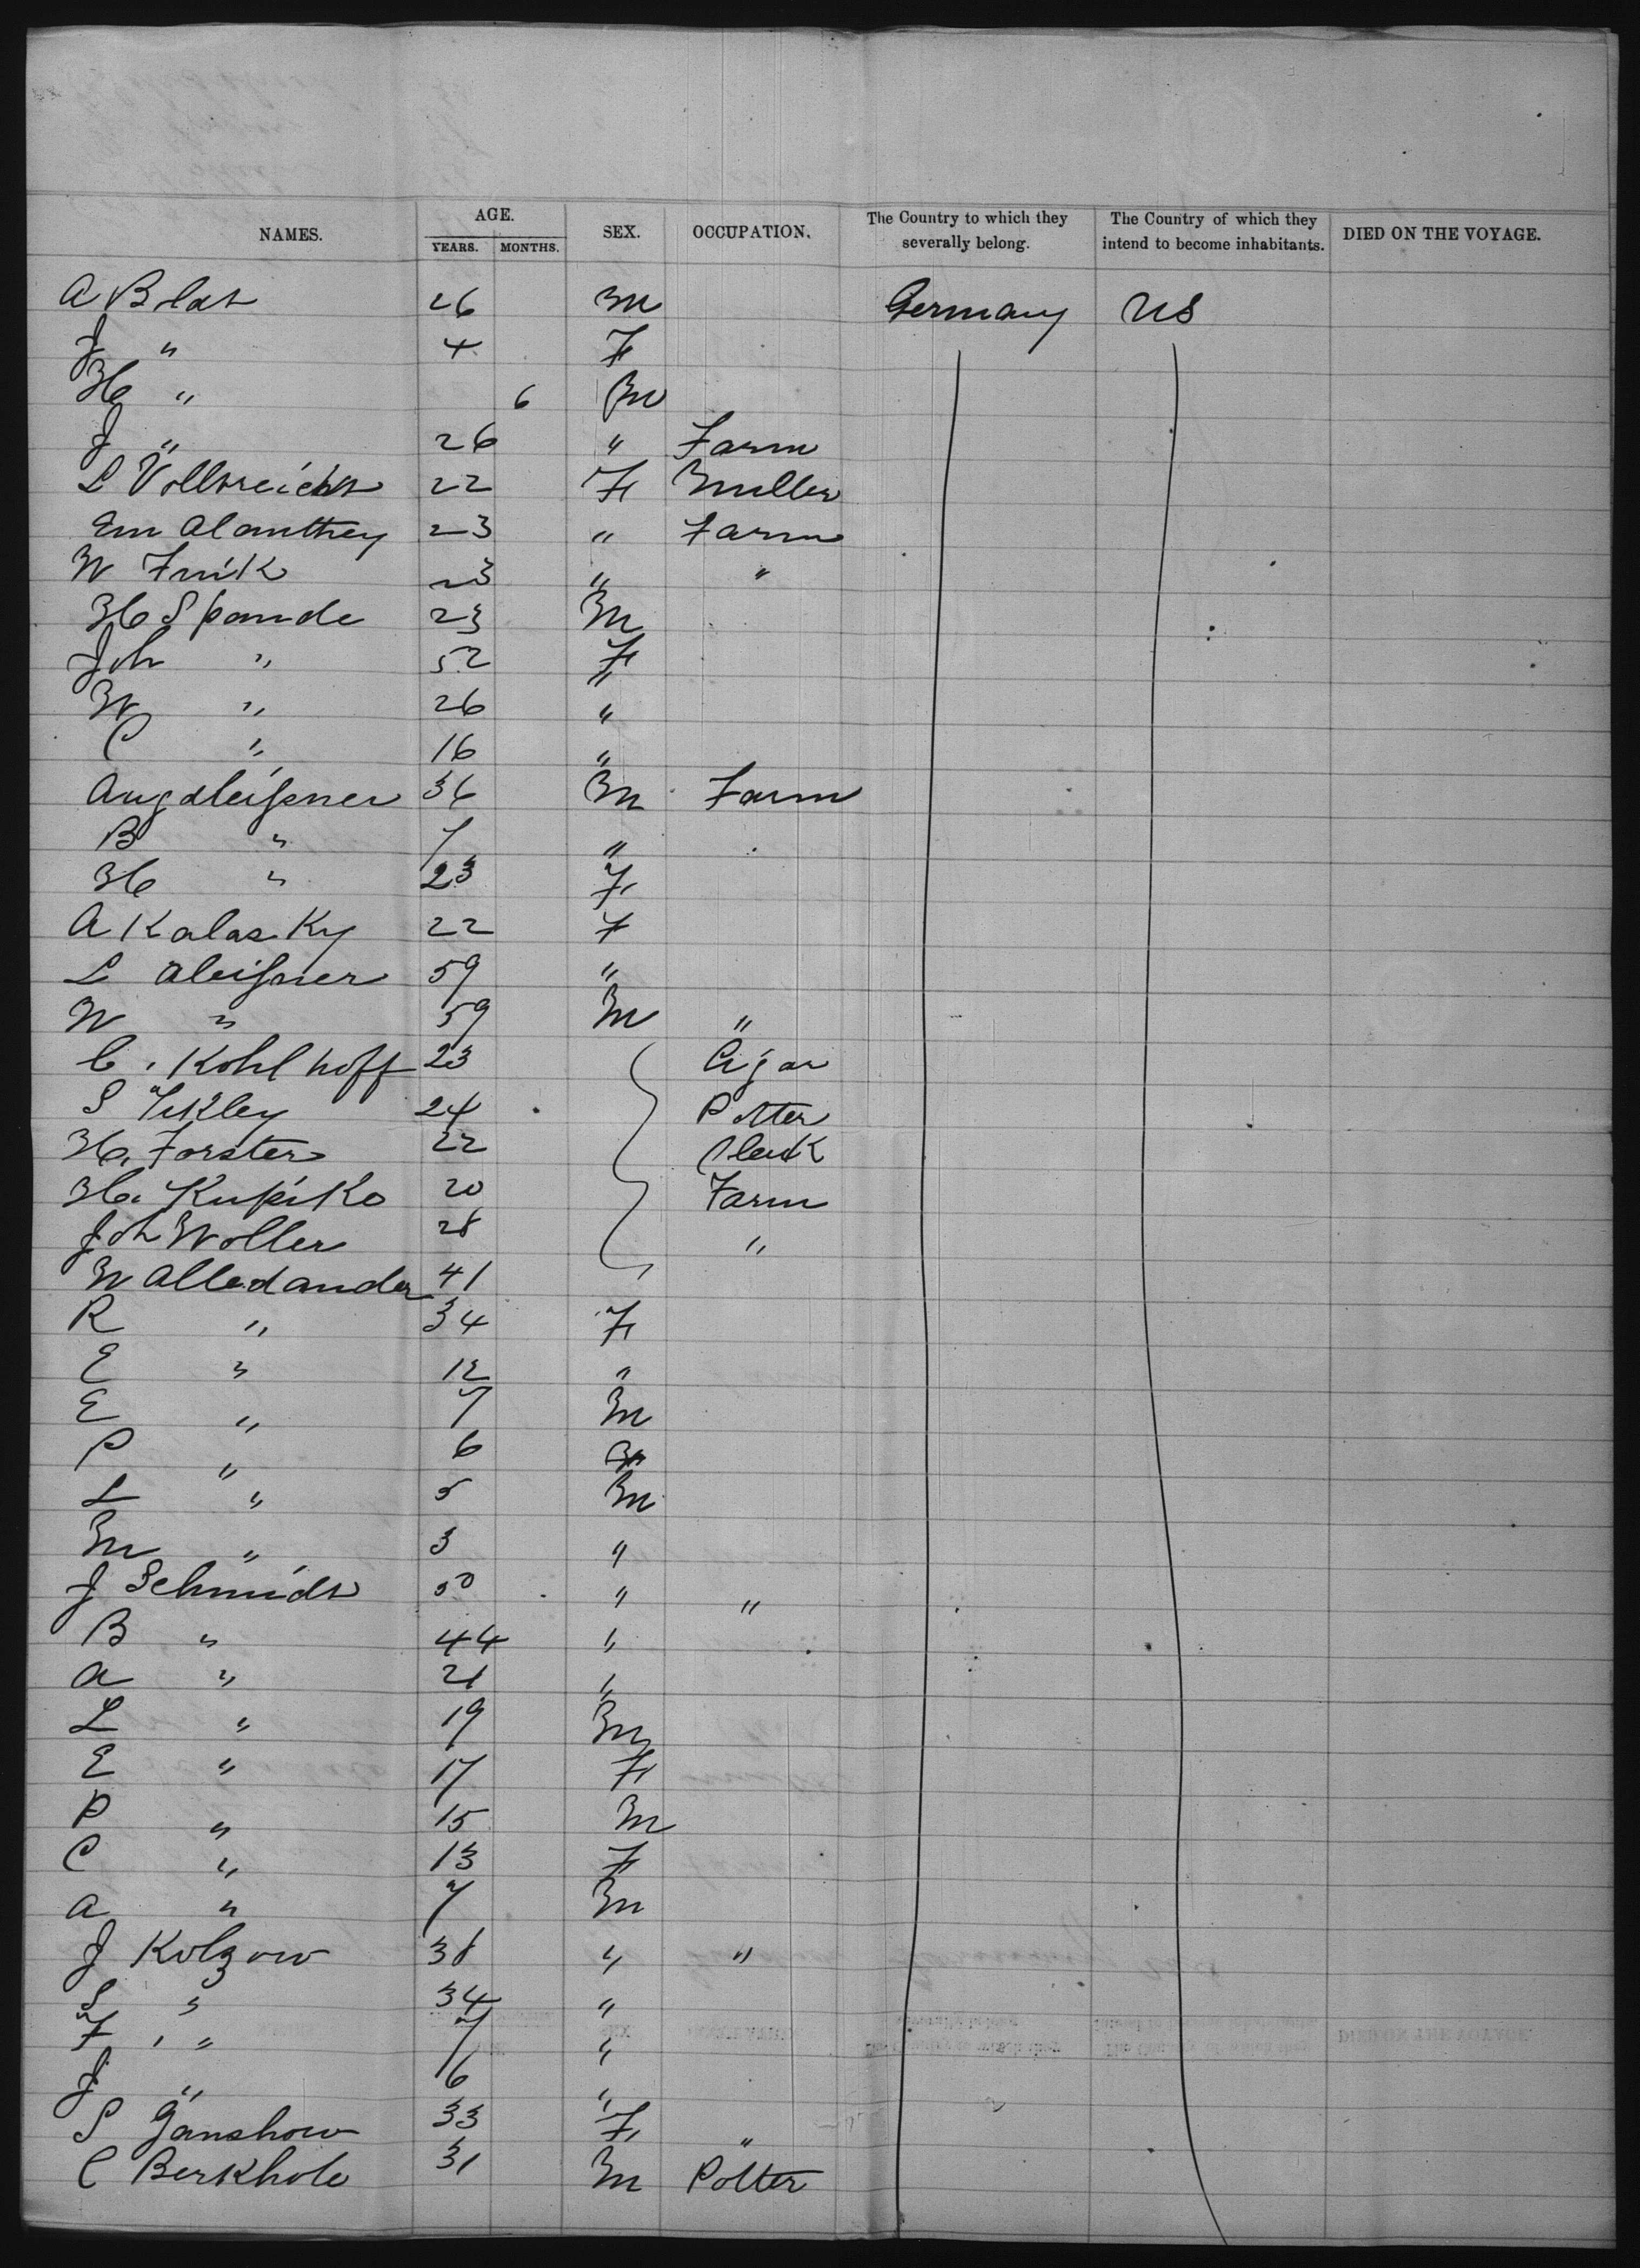 NAMES. AGE. YEARS. MONTHS. SEX. OCCUPATION. The Country to which they severally belong. The Country of which they intend to become inhabitants. DIED ON THE VOYAGE.
A Blat 26 M Germany US
J " 4 F
H " 6 M
J " 26 " Farm
L Vollbreicht 22 F Muller
Em Alanthey 23 " Farm
W Frick 23 " "
H Spande 23 M
Joh " 52 F
W " 26 "
C " 16 "
Aug Aleißner 36 M Farm
B " 7 "
H " 23 F
A Kalasky 22 F
L Aleißner 59 "
W " 59 M "
C. Kohlhoff 23 Cigar
S 24 Potter
H. Forster 22 Clerk
H. Kupiko 20 Farm
Joh Woller 28 "
W Alledander 41
R " 34 F
E " 12 "
E " 7 M
P " 6 M
L " 5 M
M " 3 "
J Schmidt 50 " "
B " 44 "
A " 21 "
L " 19 M
E " 17 F
P " 15 M
C " 13 F
A " 7 M
J Kolzow 38 " "
S " 34 "
F " 7 "
J " 6 "
S Janshow 33 F "
C Berkhole 31 M Potter